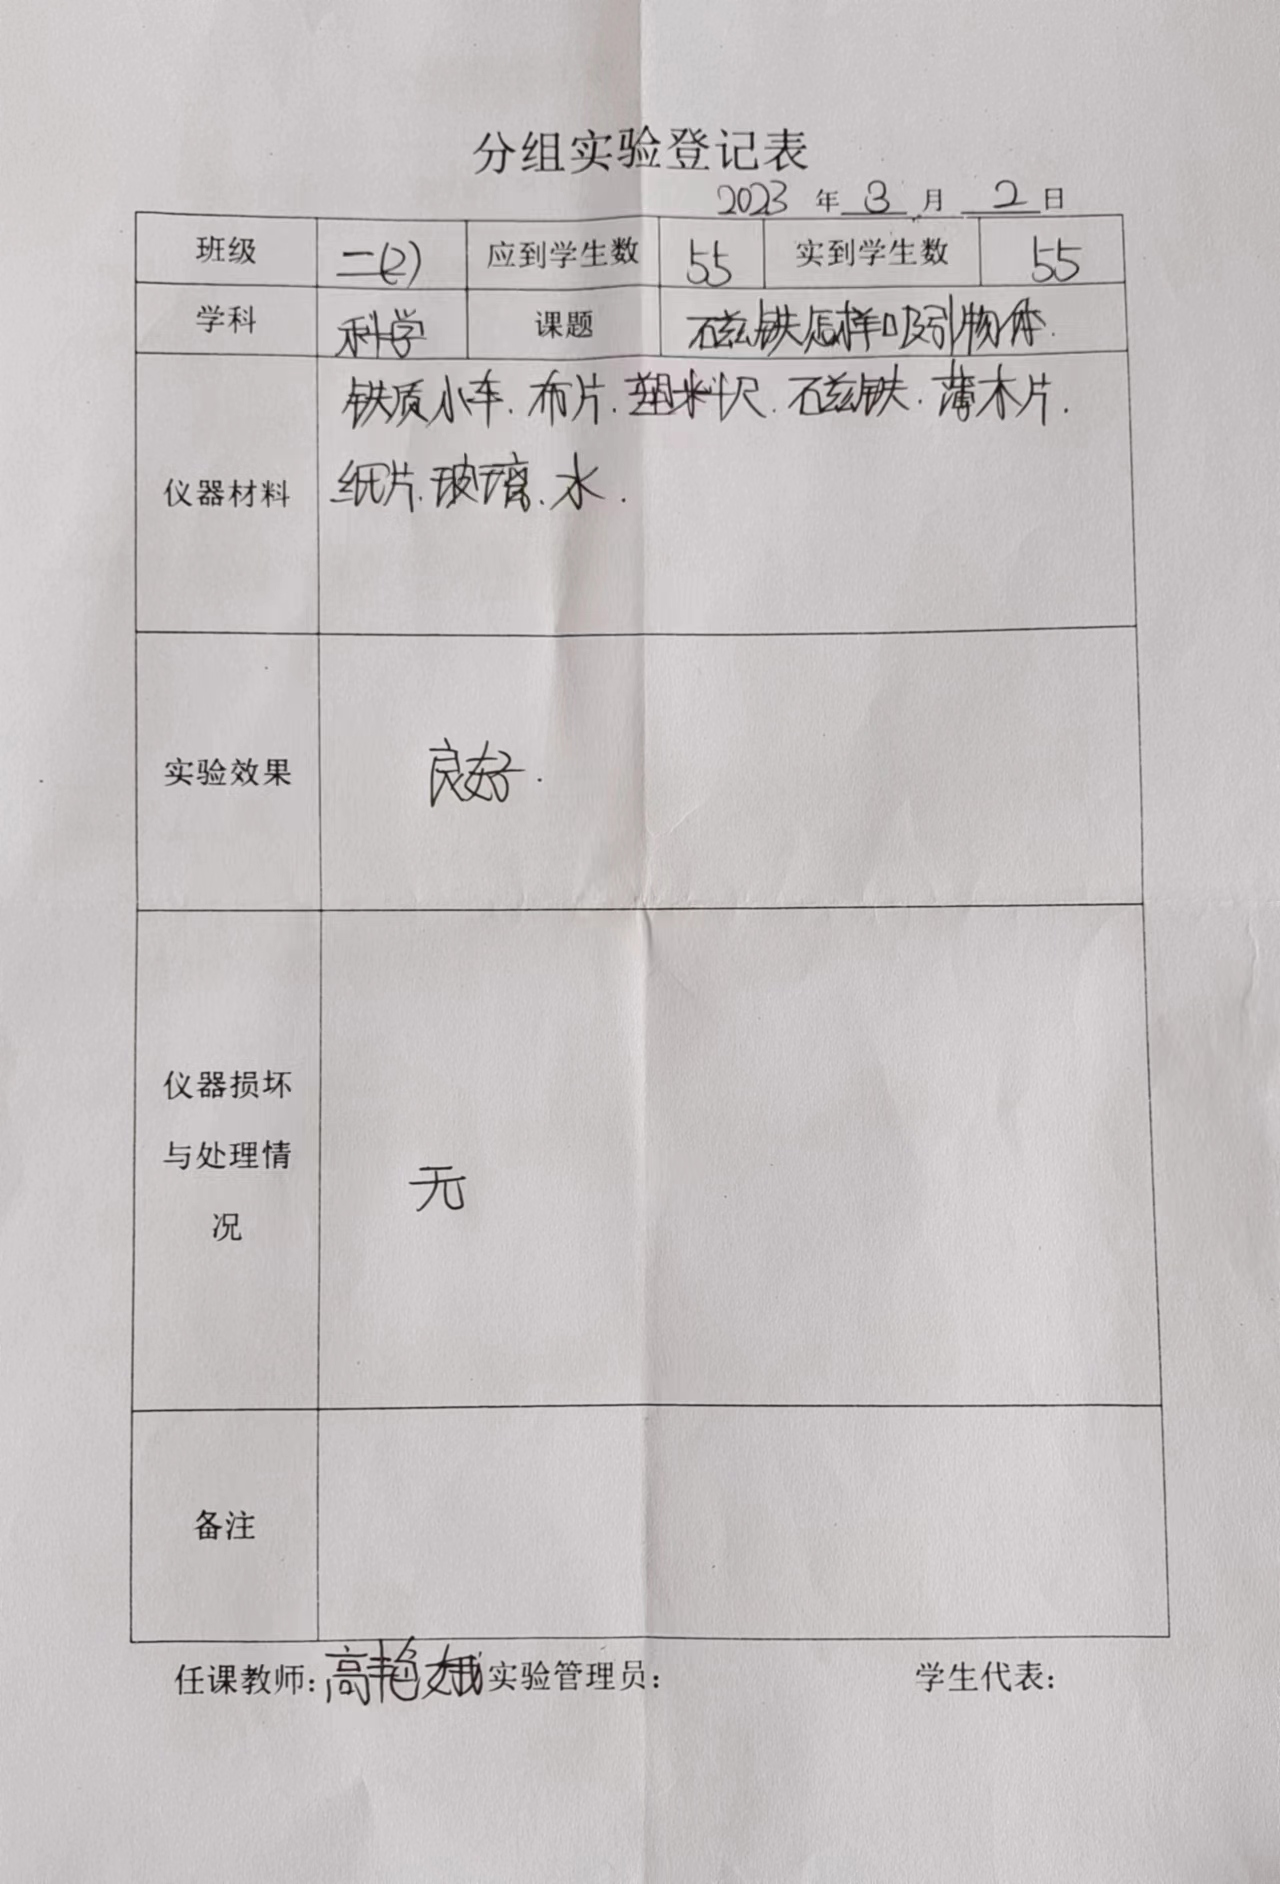 分组实验登记表
2023 年 3 月 2 日
班级 二(2) 应到学生数 55 实到学生数 55
学科 科学 课题 磁铁怎样吸引物体.
铁质小车. 布片. 塑料尺. 磁铁. 薄木片.
仪器材料 纸片. 玻璃. 水.
实验效果 良好.
仪器损坏
与处理情 无
况
备注
任课教师: 高艳娥 实验管理员: 学生代表: